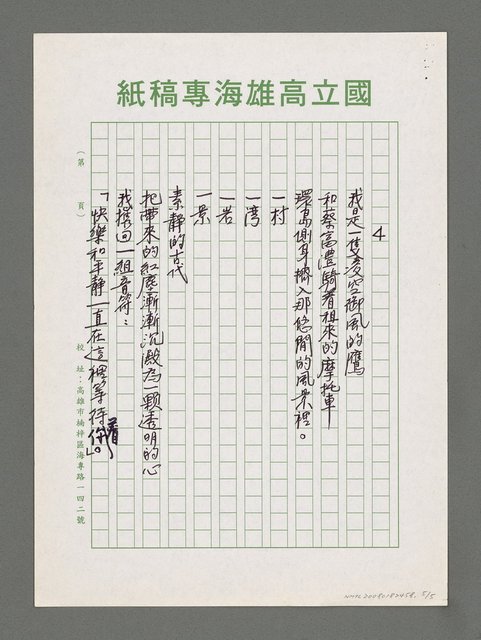 紙稿專海雄高立國
4
我是一隻凌空御風的鷹
和蔡富澧騎着租來的摩托車
環島側身擠入那悠閒的風景裡。
一村
一湾
一岩
一景
素靜的古代
把帶來的紅塵漸漸沉澱為一顆透明的心
我撂回一組音符：
「快樂和平靜一直在這裡等待着你」。
（第　頁）
校　址：高雄市楠梓區海專路一四二號
NMTL20080182458. 5/5